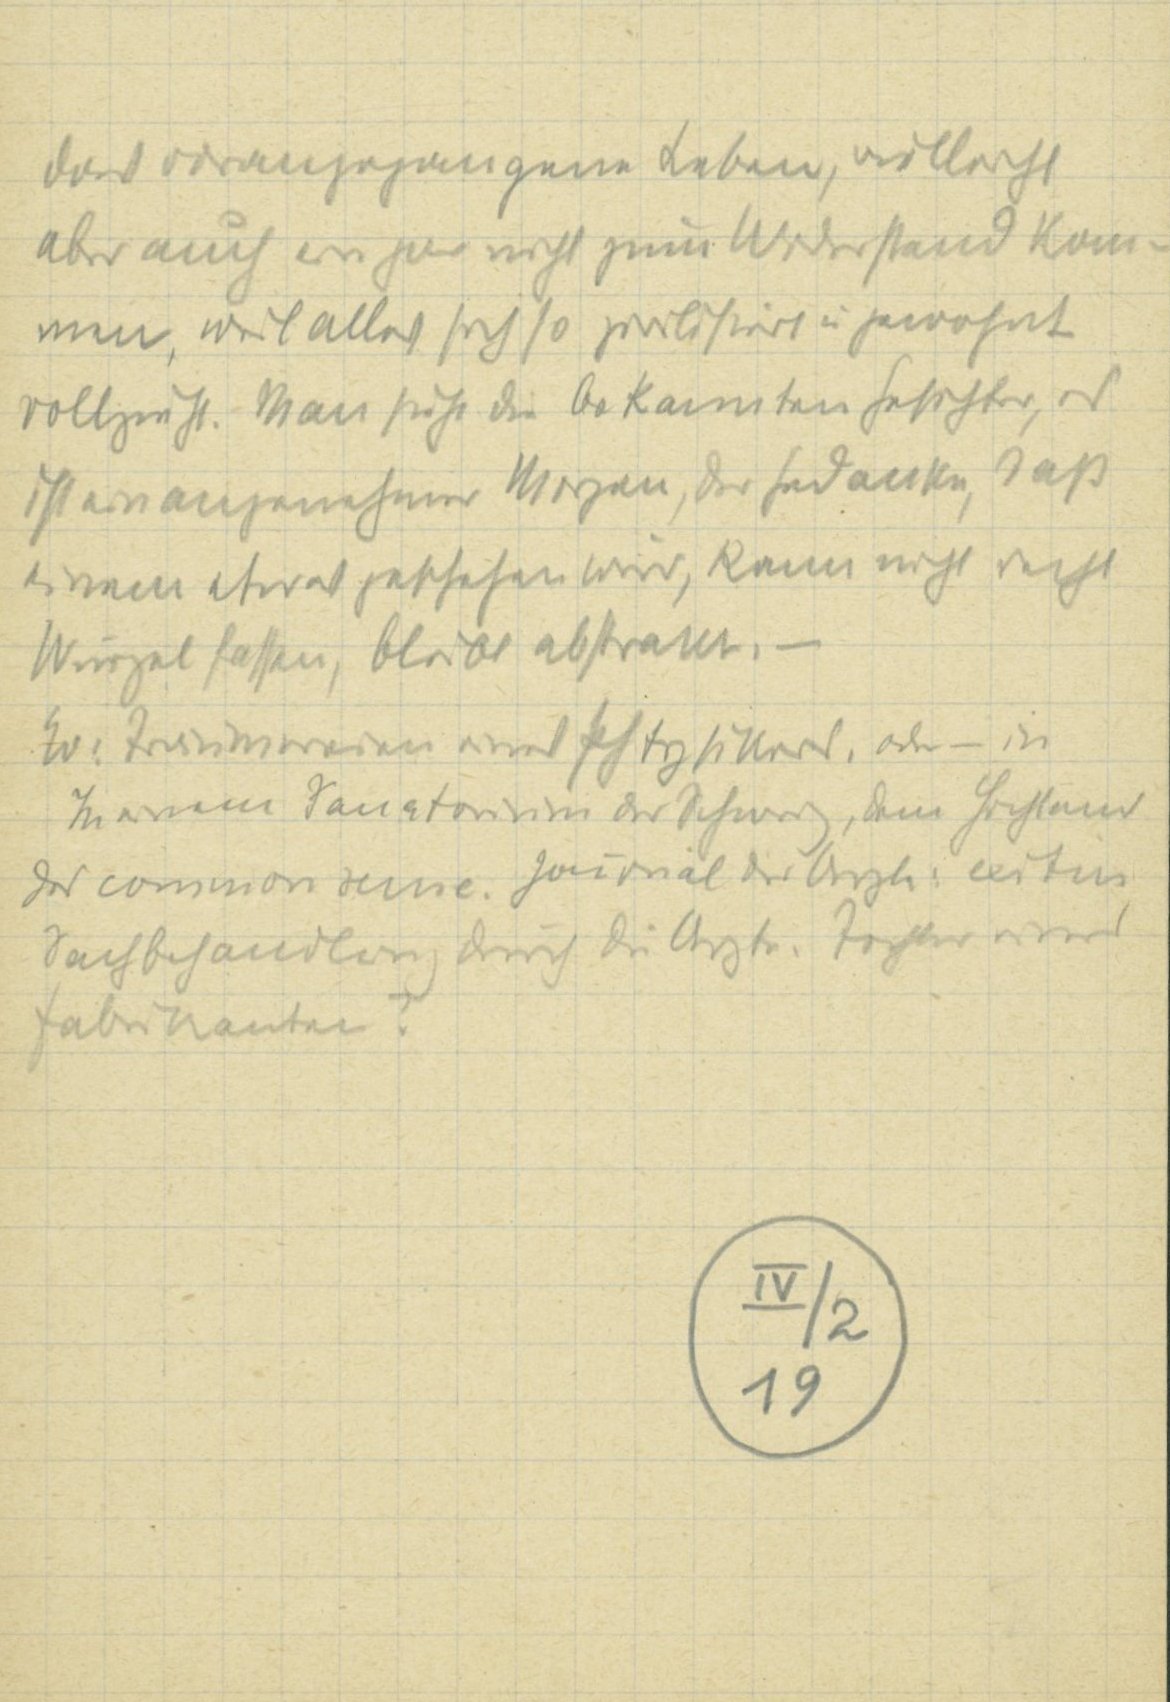 das vorangegangene Leben, vielleicht
aber auch gar nicht zum Widerstand kom-
men, weil alles sich so zivilisiert u gewohnt
vollzieht. Man sieht die bekannten Gesichter, es
ist ein angenehmer Morgen, der Gedanke, daß
einem etwas geschehen wird, kann nicht recht
Wurzel fassen, bleibt abstrakt. –
Träumereien eines oder – in
In einem Sanatorium der Schweiz, dem Hochland
des common sense. Journal der Ärzte: exitus,
Sachbehandlung durch die Ärzte. Tochter eines
Fabrikanten?
IV/2
19